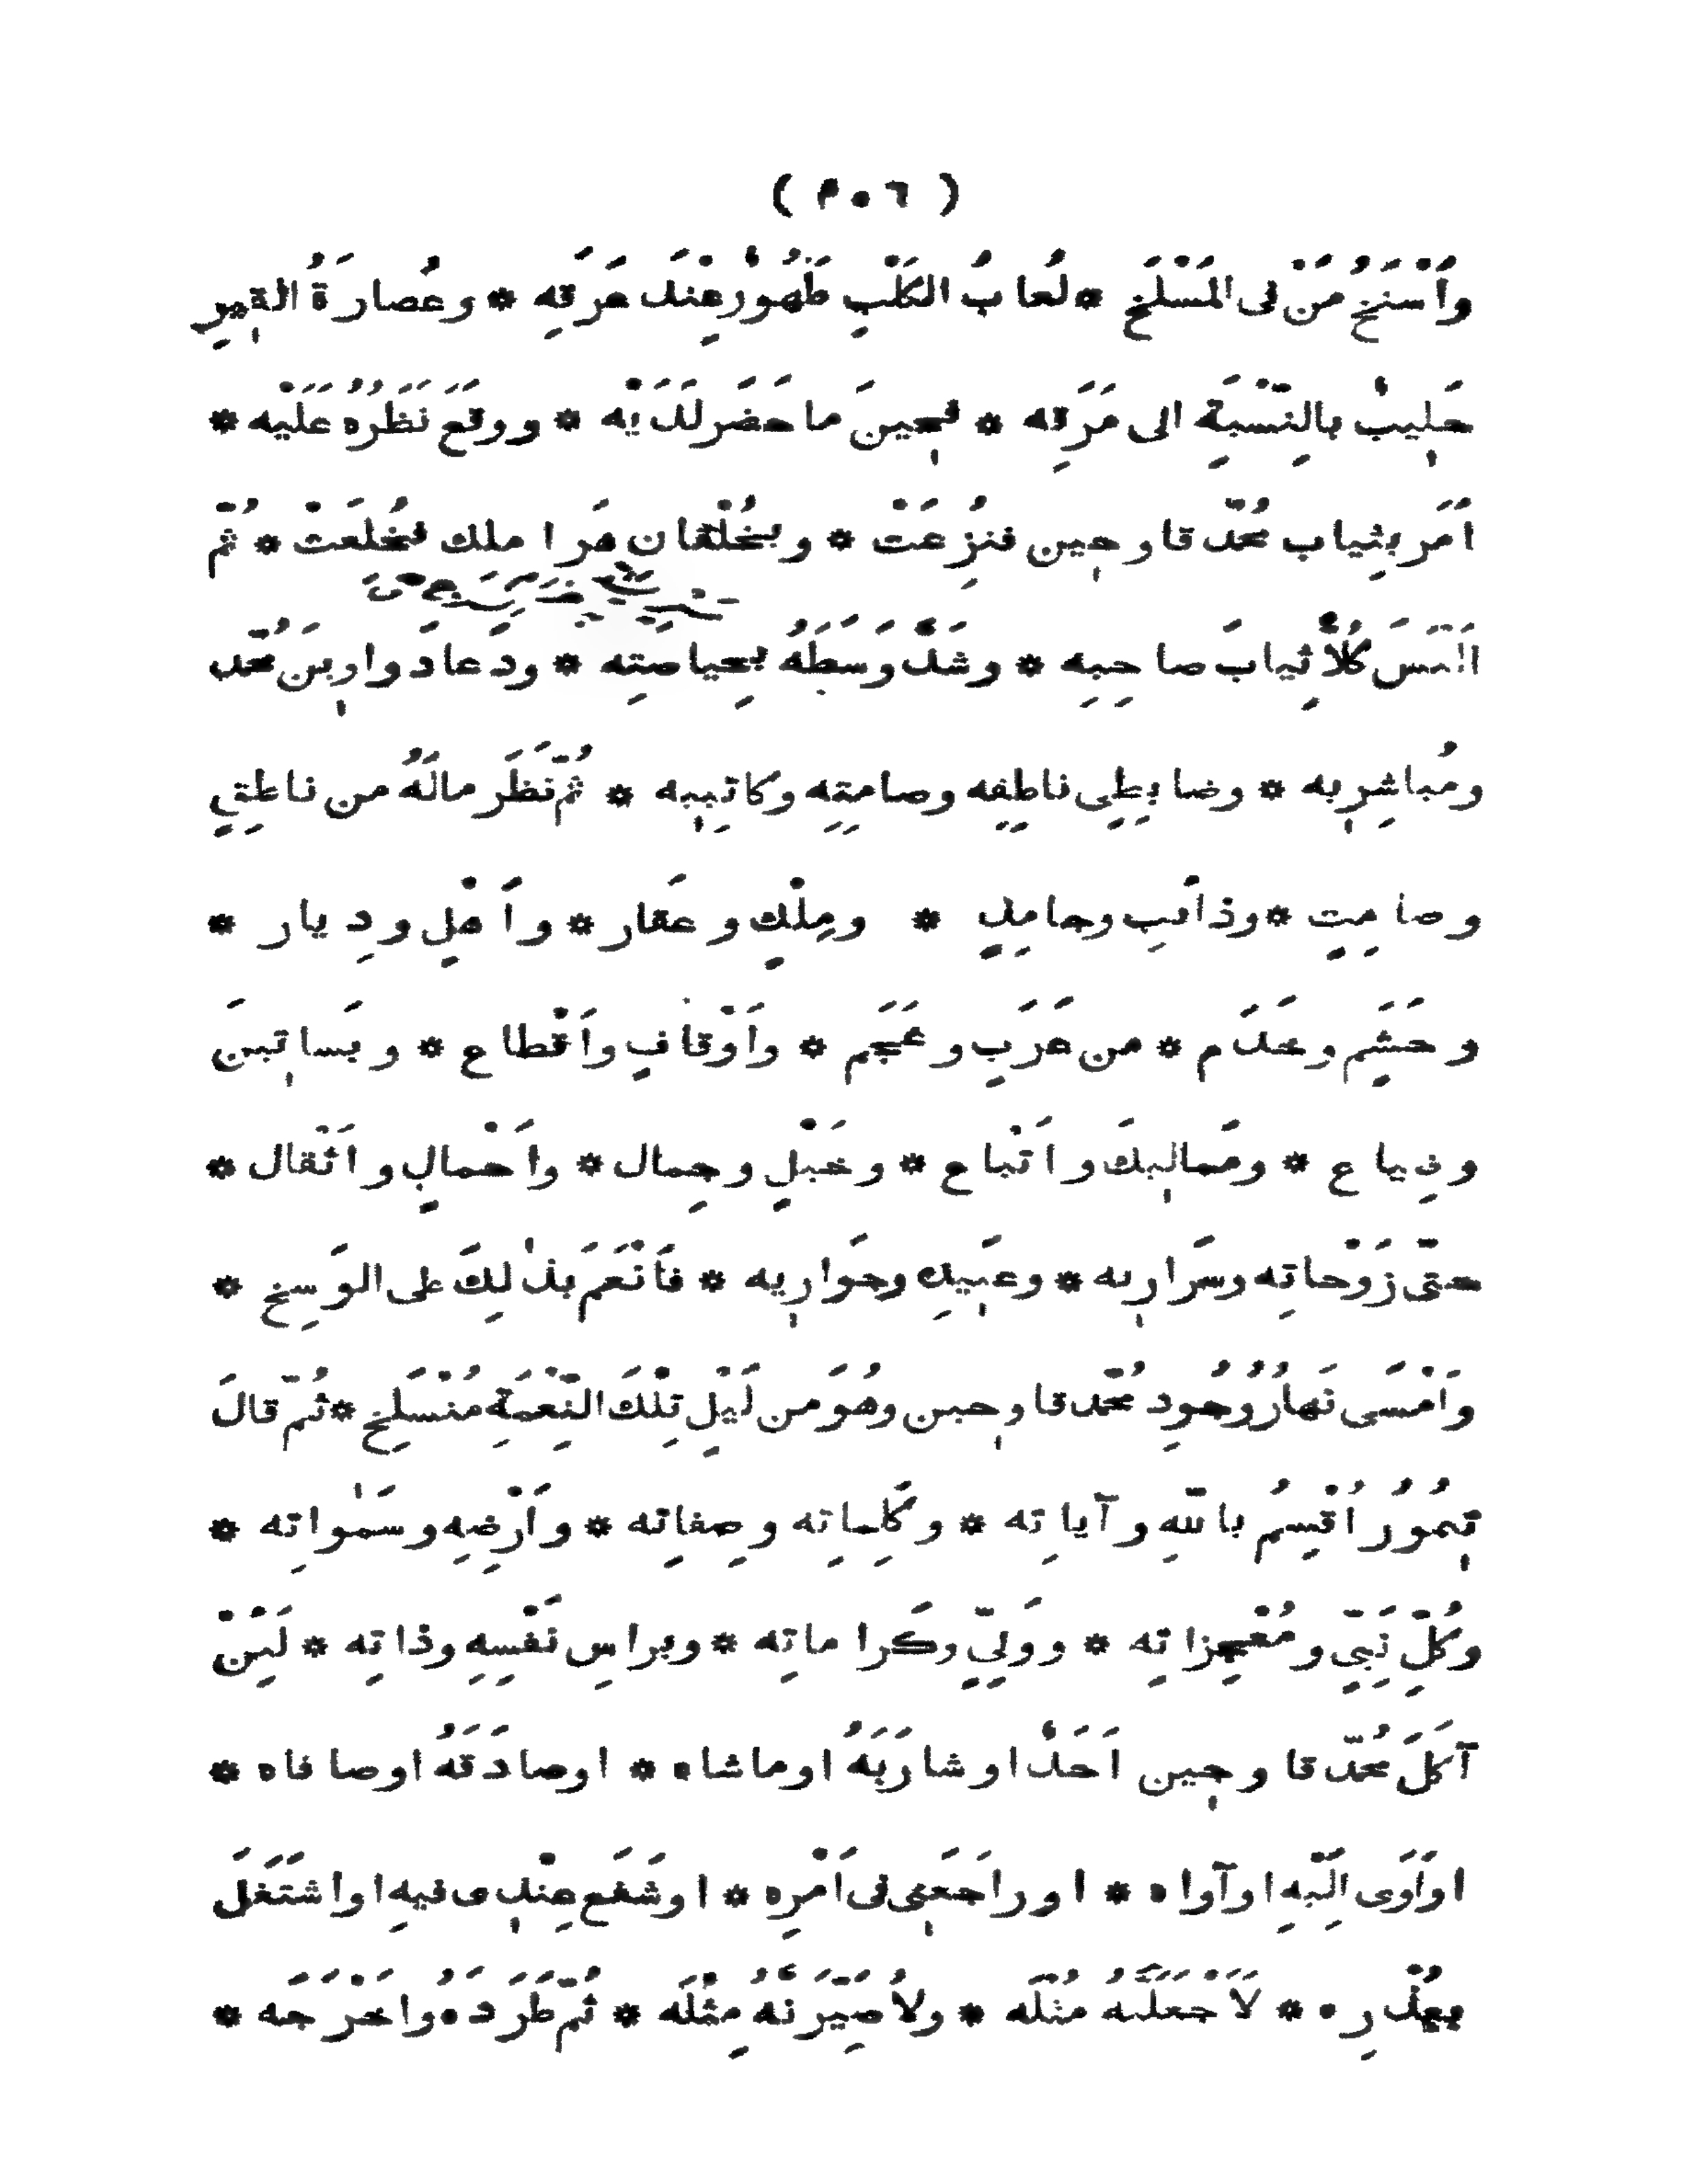 ( ٤٠٦ )
وَاَسْنَخُ مَنْ فى المَسْلَخِ * لُعابُ الكَلْبِ طَهُورٌ عِنْدَ عَرَقِه * وعُصارَةُ القِيرِ
حَلِيبٌ بالنِّسْبَةِ الى مَرَقِه * فحِينَ ما حَضَرَ لَدَيْه * ووقَعَ نَظَرُهُ عَلَيْه *
اَمَرَ بثِياب مُحَمَّد قاوجين فنُزِعَتْ * وبخُلْقان هَرَا مِلِك فخُلِعَتْ * ثُمّ
اَلْبَسَ كُلاًّ ثِيابَ صاحِبِه * وشَدَّ وَسَطَهُ بحِياصَتِه * ودَعا دَواوِبنَ مُحَمَّد
ومُباشِرِيه * وضابِطِى ناطِقِه وصامِتِه وكاتِبِيه * ثُمّ نَظَرَ مالَهُ من ناطِقٍ
وصامِتٍ * وذائبٍ وجامِدٍ * ومِلْكٍ وعَقار * واَهْلٍ ودِيار *
وحَشَمٍ وخَدَم * من عَرَبٍ وعَجَم * واَوْقافٍ واَقْطاع * وبَساتين
وضِياع * ومَماليكَ واَتْباع * وخَيْلٍ وجِمال * واَحْمالٍ واَثْقال *
حتّى زَوْجاتِه وسَرارِيه * وعَبيدِه وجَوارِيه * فاَنْعَمَ بذٰلِكَ على الوَسِخ *
وَاَمْسَى نَهارُ وُجُودِ مُحَمَّد قاوجين وهُوَ من لَيْلِ تِلْكَ النِّعْمَةِ مُنْسَلِخ * ثُمّ قالَ
تِيمُورُ اُقْسِمُ باللّهِ وآياتِه * وكَلِماتِه وصِفاتِه * واَرْضِهِ وسَمٰواتِه *
وكُلِّ نَبِىٍّ ومُعْجِزاتِه * ووَلِىٍّ وكَراماتِه * وبراسِ نَفْسِهِ وذاتِه * لَئِنْ
آكَلَ مُحَمَّد قاوجين اَحَدٌ اوشارَبَهُ اوماشاه * اوصادَقَهُ اوصافاه *
اواَوَى اِلَيْهِ اوآواه * اوراجَعَنِى فى اَمْرِه * اوشَفَع عِنْدِى فيهِ اواشْتَغَلَ
بعُذْرِه * لاَجْعَلَنَّهُ مثْلَه * ولاُصَيِّرَنَّهُ مِثْلَه * ثُمّ طَرَدَهُ واَخْرَجَه *